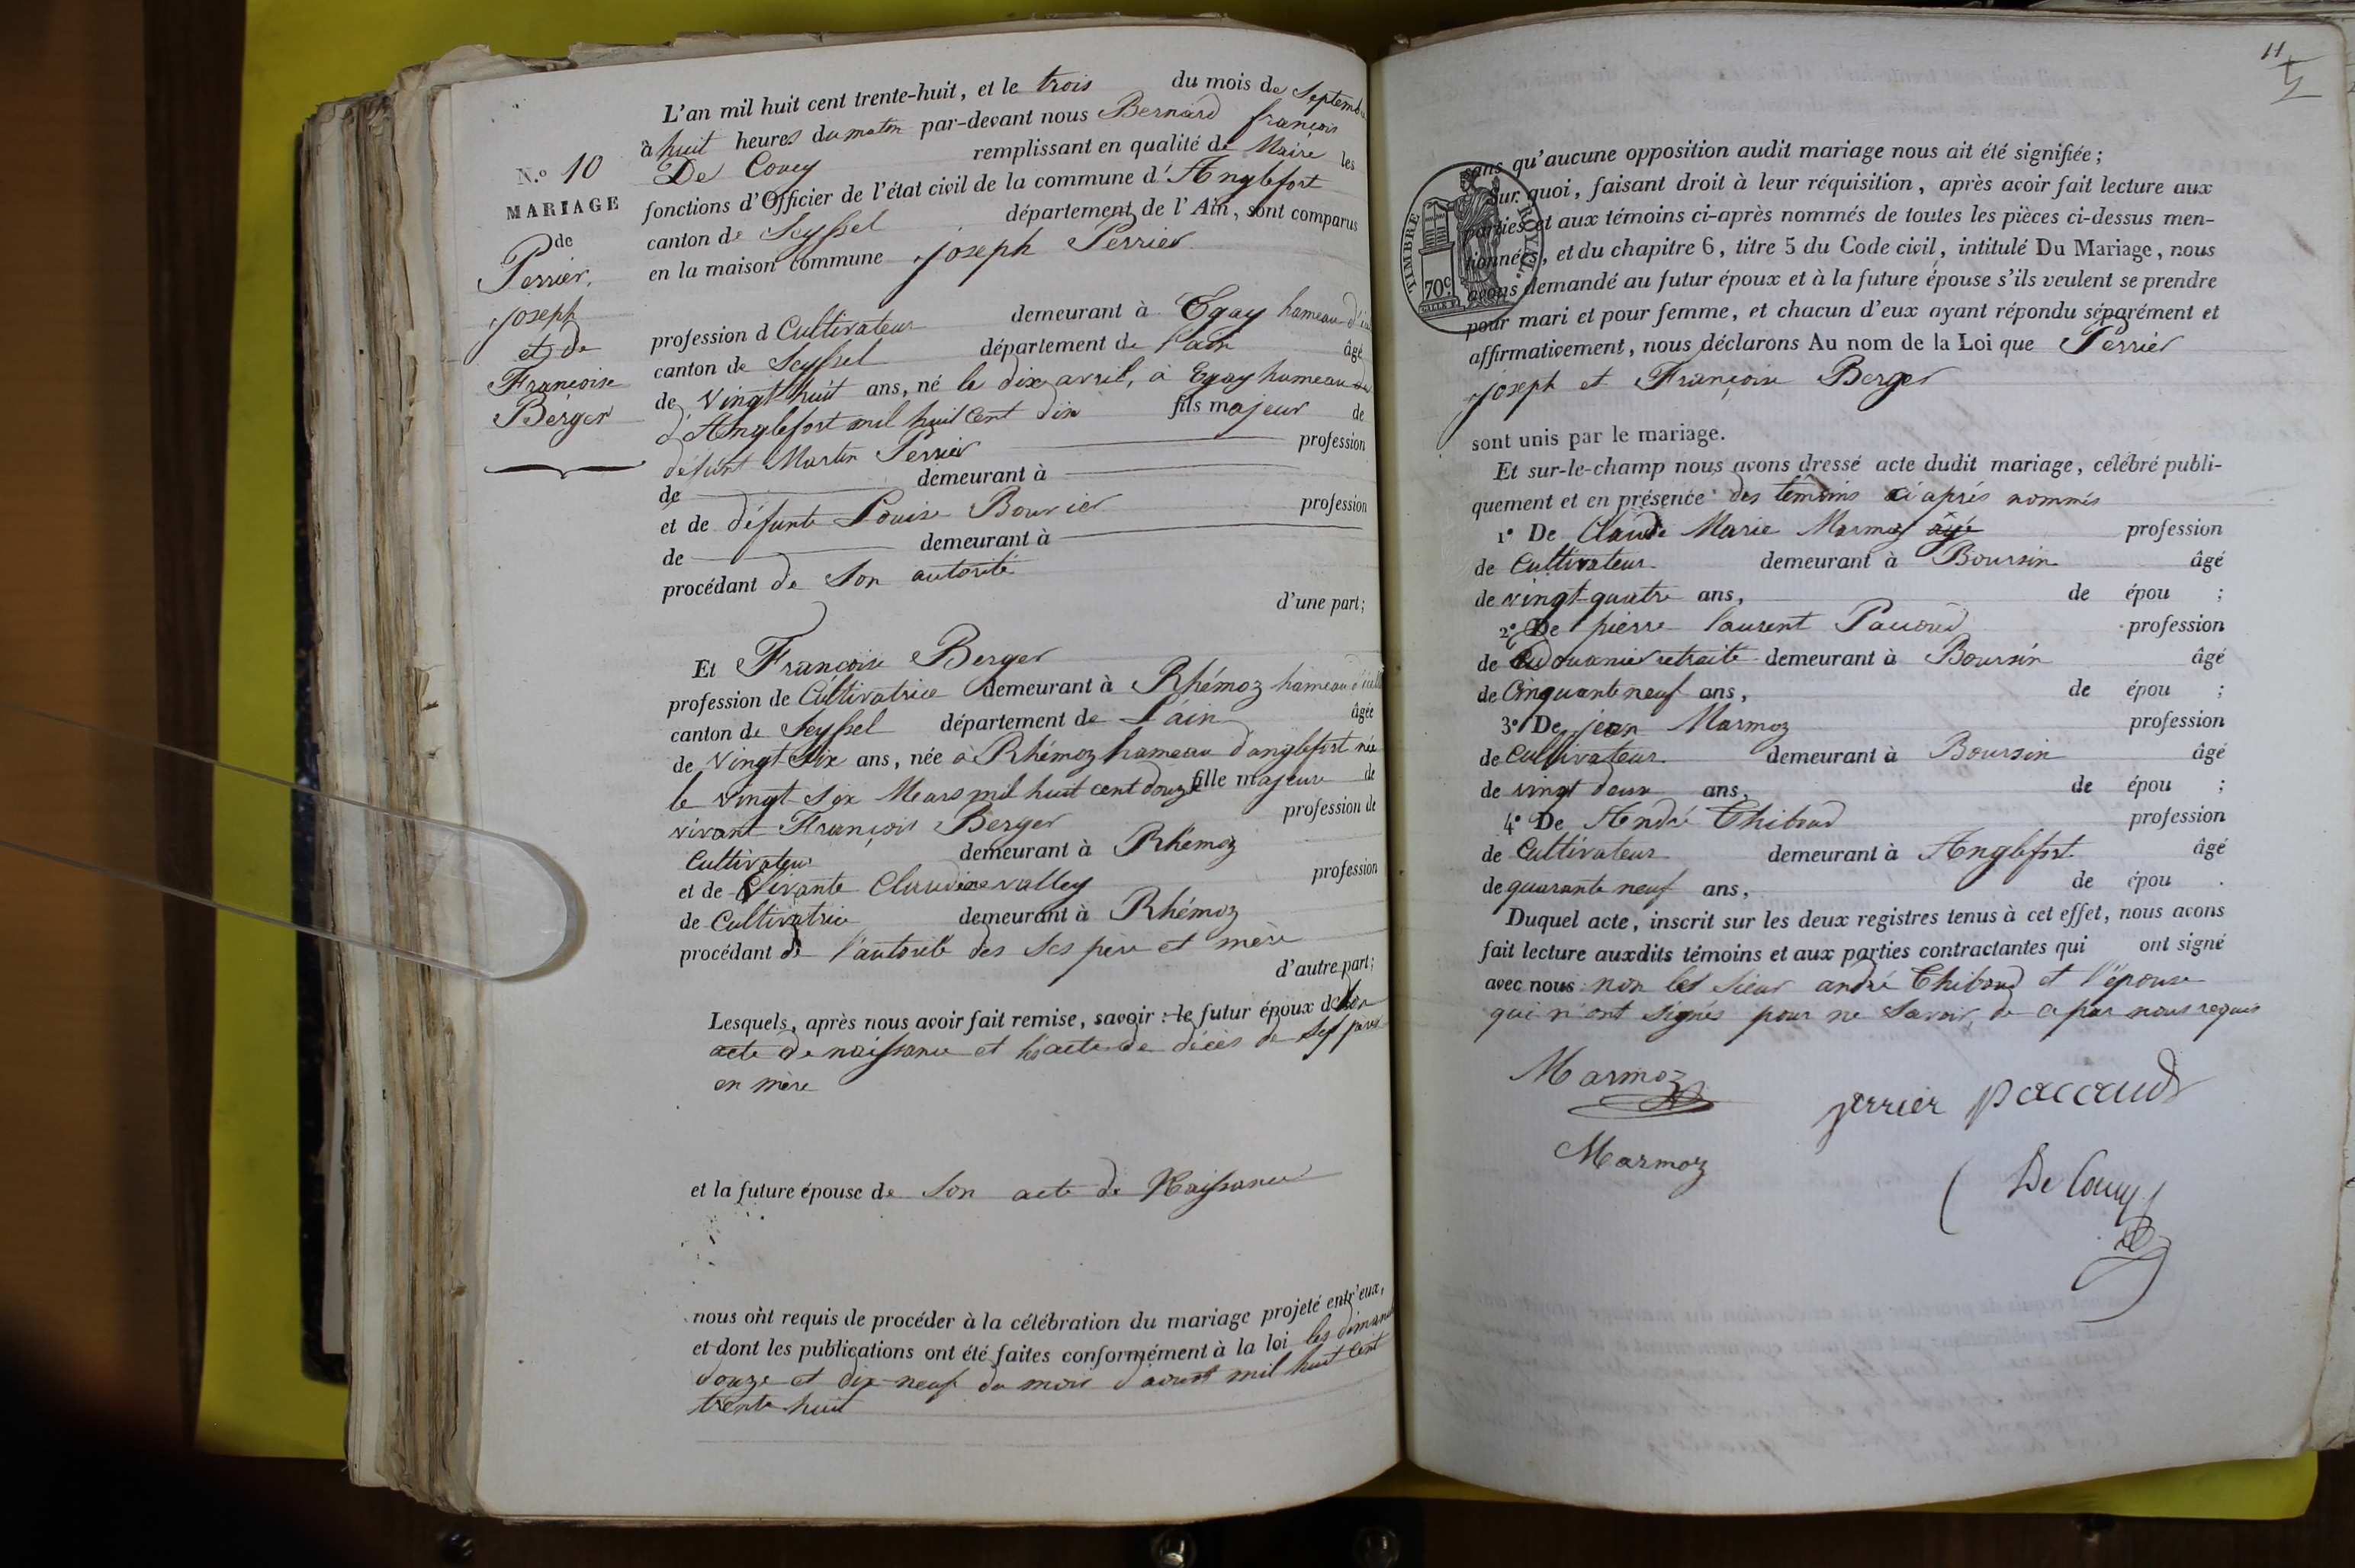 N.o 10
MARIAGE
de
Perrier,
joseph
et de
Françoise
Berger
L'an mil huit cent trente-huit, et le trois du mois de Septemb
à huit heures du matin par-devant nous Bernard françois
De Coucy remplissant en qualité de Maire les
fonctions d'Officier de l'état civil de la commune d'Anglefort
canton de Seyssel département de l'Ain, sont comparus
en la maison commune joseph Perrier
profession d Cultivateur demeurant à Egay hameau d'
canton de Seyssel département de l'ain âgé
de Vingt huit ans, né le dix avril, à Egay hameau
d'Anglefort mil huit cent dix fils majeur de
défunt Martin Perrier profession
de demeurant à
et de défunte Louise Bouvier profession
de demeurant à
procédant de Son autorité
d'une part;
Et Françoise Berger
profession de Cultivatrice demeurant à Rhémoz hameau d'
canton de Seyssel département de L'ain âgée
de Vingt Six ans, née à Rhémoz hameau d'anglefort née
le vingt Six Mars mil huit cent douze fille majeure de
vivant François Berger profession de
Cultivateur demeurant à Rhémoz
et de Vivante Claudine valley profession
de Cultivatrice demeurant à Rhémoz
procédant de l'autorité des Ses père et mère
d'autre part;
Lesquels, après nous avoir fait remise, savoir : le futur époux de Son
acte de naissance et les acte de décès de Ses père
en mère
et la future épouse de Son acte de Naissance
nous ont requis de procéder à la célébration du mariage projeté entr'eux,
et dont les publications ont été faites conformément à la loi les diman
douze et dix-neuf du mois d'aoust mil huit cent
trente huit
11
TIMBRE ROYAL
70c
sans qu'aucune opposition audit mariage nous ait été signifiée ;
Sur quoi, faisant droit à leur réquisition, après avoir fait lecture aux
parties et aux témoins ci-après nommés de toutes les pièces ci-dessus men-
tionnées, et du chapitre 6, titre 5 du Code civil, intitulé Du Mariage, nous
avons demandé au futur époux et à la future épouse s'ils veulent se prendre
pour mari et pour femme, et chacun d'eux ayant répondu séparément et
affirmativement, nous déclarons Au nom de la Loi que Perrier
joseph et Françoise Berger
sont unis par le mariage.
Et sur-le-champ nous avons dressé acte dudit mariage, célébré publi-
quement et en présence des témoins ci après nommés
1o De Claude Marie Marmoz âgé profession
de Cultivateur demeurant à Boursin âgé
de vingt-quatre ans, de épou ;
2o De pierre laurent Paccoud profession
de douanier retraité demeurant à Boursin âgé
de Cinquante neuf ans, de épou ;
3o De jean Marmoz profession
de Cultivateur demeurant à Boursin âgé
de vingt deux ans, de épou ;
4o De André Thiboud profession
de Cultivateur demeurant à Anglefort âgé
de quarante neuf ans, de épou .
Duquel acte, inscrit sur les deux registres tenus à cet effet, nous avons
fait lecture auxdits témoins et aux parties contractantes qui ont signé
avec nous non les sieur andré Thiboud et l'épouse
qui n'ont signés pour ne Savoir de a par nous requis
Marmoz
perrier paccaud
Marmoz
De Coucy